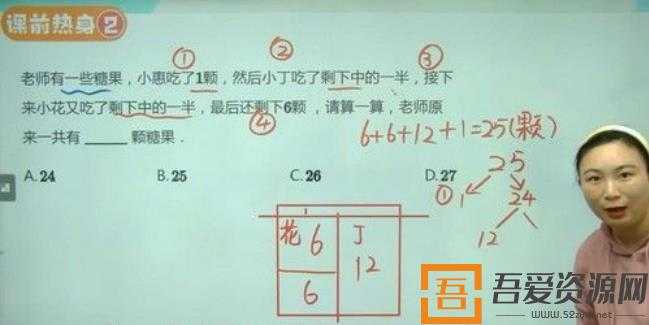 课前热身2
① ② ③
老师有一些糖果，小惠吃了1颗，然后小丁吃了剩下中的一半，接下
来小花又吃了剩下中的一半，最后还剩下6颗，请算一算，老师原
④
来一共有______颗糖果．
6+6+12+1=25(颗)
A. 24 B. 25 C. 26 D. 27
25
① 1 24
12
花 6 丁
12
6
吾 吾爱资源网
www.52zyw.net